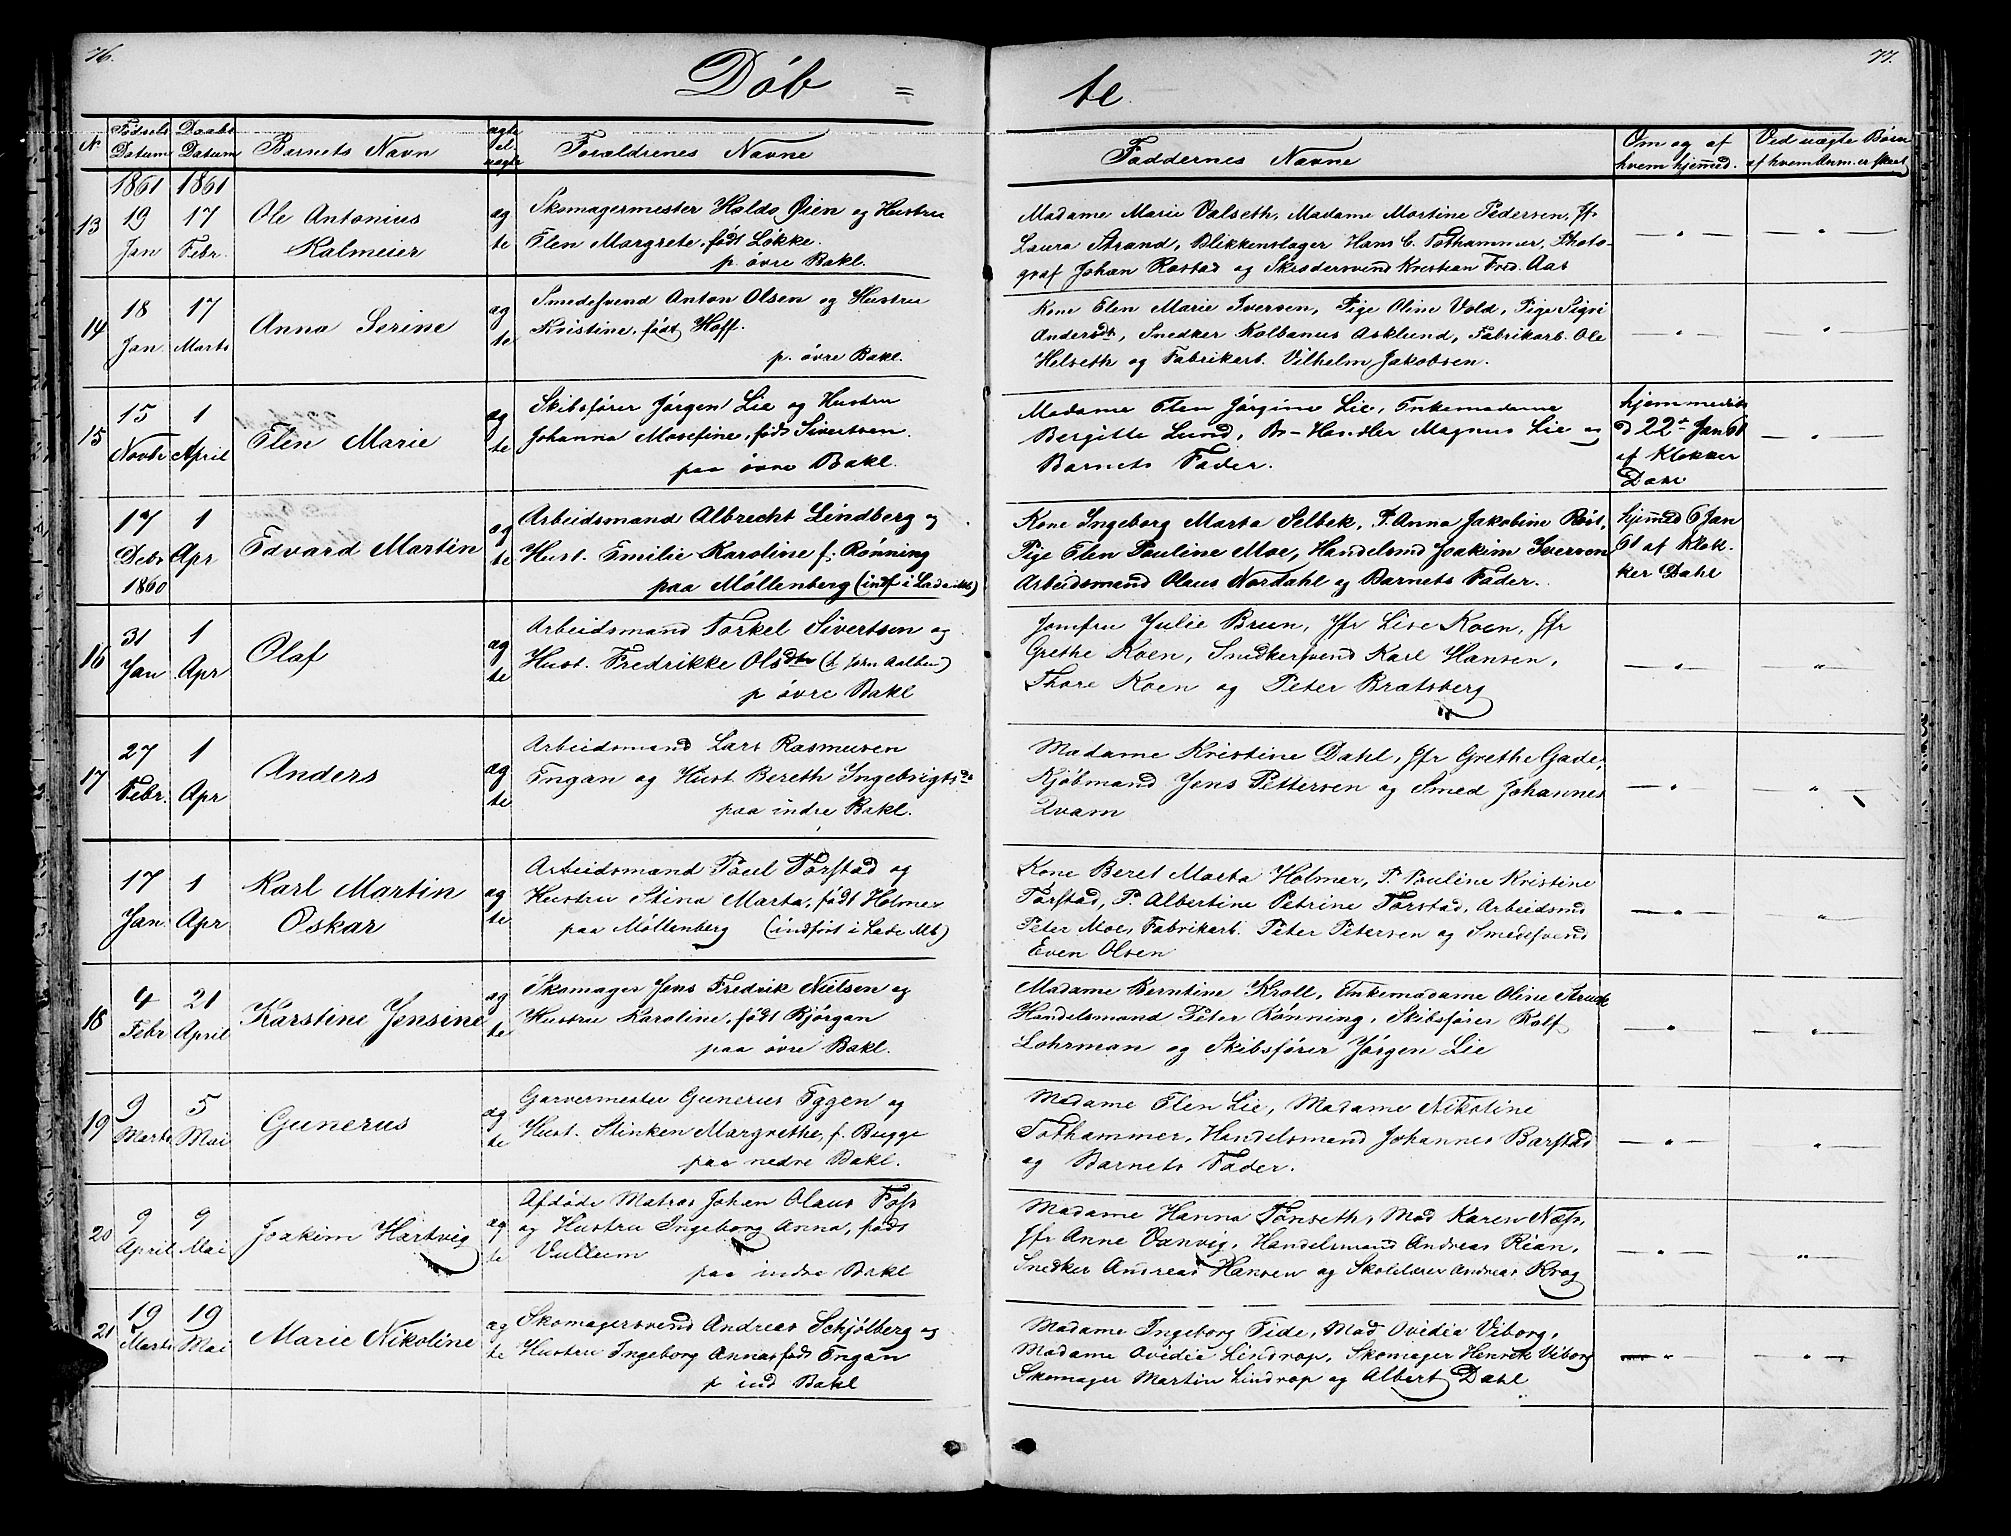 76.
77.
Döb = te.
N
Fødsels Datum
Daabs Datum
Barnets Navn
ægte el uægte
Forældrenes Navne
Faddernes Navne
Om og af hvem hjemmed.
Ved uægte Børn af hvem Anm. er skeet
1861 1861
13
19 Jan
17 Febr.
Ole Antonius
Kalmeier
æg
te
Skomagermester Halds Øien og Hustru
Elen Margrete, født Løkke.
p. øvre Bakl.
Madame Marie Valseth, Madame Martine Pedersen, Jfr
Laura Strand, Blikkenslager Hans C. Tothammer, Photo-
graf Johan Rostad og Skrædersvend Kristian Fred. Aas
— " —
— " —
14
18 Jan.
17 Marts
Anna Serine
æg
te
Smedesvend Anton Olsen og Hustru
Kristine, født Hoff.
p. øvre Bakl.
Kone Elen Marie Iversen, Pige Oline Vold, Pige Sigri
Andersdt, Snedker Kolbanus Asklund, Fabrikarb. Ole
Helseth og Fabrikarb. Vilhelm Jakobsen.
— " —
— " —
15
15 Novbr
1 April
Elen Marie
æg
te
Skibsfører Jørgen Lie og Hustru
Johanna Mosefine, føds Sivertsen.
paa øvre Bakl.
Madame Elen Jørgine Lie, Enkemadame
Bergitte Lund, Br-Handler Magnus Lie og
Barnets Fader.
hjemmedöb
d 22de Jan 61
af Klokker
Dahl
— " —
17 Debr 1860
1 Apr
Edvard Martin
æg
te
Arbeidsmand Albrecht Lindberg og
Hust. Emilie Karoline f: Rønning
paa Møllenberg (indf i Lade Mb)
Kone Ingeborg Marta Selbek, P. Anna Jakobine Røst,
Pige Elen Pauline Moe, Handelsmd Joakim Iversen
Arbeidsmand Olaus Nordahl og Barnets Fader.
hjemmed 6 Jan
61 af Klok-
ker Dahl
16
31 Jan
1 Apr
Olaf
æg
te
Arbeidsmand Torkel Sivertsen og
Hust. Fredrikke Olsdtr
p øvre Bakl
Jomfru Julie Brun, Jfr Lise Koen, Jfr
Grethe Koen, Snedkersvend Karl Hansen,
Thore Koen og Peter Bratsberg
— " —
— " —
17
27 Febr.
1 Apr
Anders
æg
te
Arbeidsmand Lars Rasmusen
Engan og Hust Bereth Ingebrigtsdr
paa indre Bakl.
Madame Kristine Dahl, Jfr Grethe Gade,
Kjöbmand Jens Pettersen og Smed Johannes
Qvam
— " —
— " —
17 Jan.
1 Apr
Karl Martin
Oskar
æg
te
Arbeidsmand Poul Forstad og
Hustru Stina Marta, født Holmer
paa Møllenberg (indført i Lade Mb)
Kone Beret Marta Holmer, P Pauline Kristine
Forstad, P. Albertine Petrine Forstad, Arbeidsmd
Peter Moe, Fabrikarb. Peter Petersen og Smedesvend
Even Olsen
— " —
— " —
18
4 Febr
21 April
Karstine Jensine
æg
te
Skomager Jens Fredrik Nielsen og
Hustru Karoline, født Bjørgan
paa øvre Bakl.
Madame Berntine Kroll, Enkemadame Oline Struck
Handelsmand Peter Rønning, Skibsfører Rolf
Lohrman og Skibsfører Jørgen Lie
— " —
— " —
19
9 Marts
5 Mai
Gunerus
æg
te
Garvermester Gunerius Eggen og
Hust. Stinken Margrethe, f. Bugge
paa nedre Bakl.
Madame Elen Lie, Madame Nikoline
Tothammer, Handelsmand Johannes Barstad
og Barnets Fader.
— " —
— " —
20
9 April
9 Mai
Joakim Hartvig
æg
te
Afdøde Matros Johan Olaus Foss
og Hustru Ingeborg Anna, føds
Vullum
paa indre Bakl
Madame Hanna Tønseth, Mad Karen Næss,
Jfr Anne Vanvig, Handelsmand Andreas Rian,
Snedker Andreas Hansen og Skolelærer Andreas Krog
— " —
— " —
21
19 Marts
19 Mai
Marie Nikoline
æg
te
Skomagersvend Andreas Schjølberg og
Hustru Ingeborg Anna, føds Engan
p ind Bakl
Madame Ingeborg Eide, Mad Ovidia Viborg,
Madame Ovidia Lindrop, Skomager Henrik Viborg
Skomager Martin Lindrop og Albert Dahl
— " —
— " —